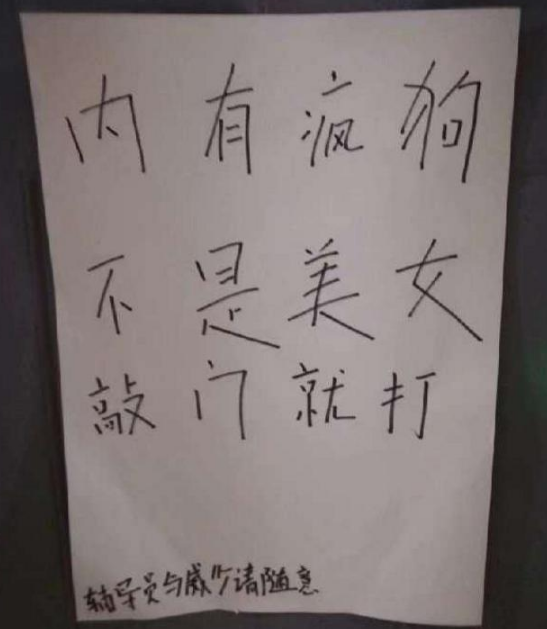 内有疯狗
不是美女
敲门就打
辅导员与威少请随意